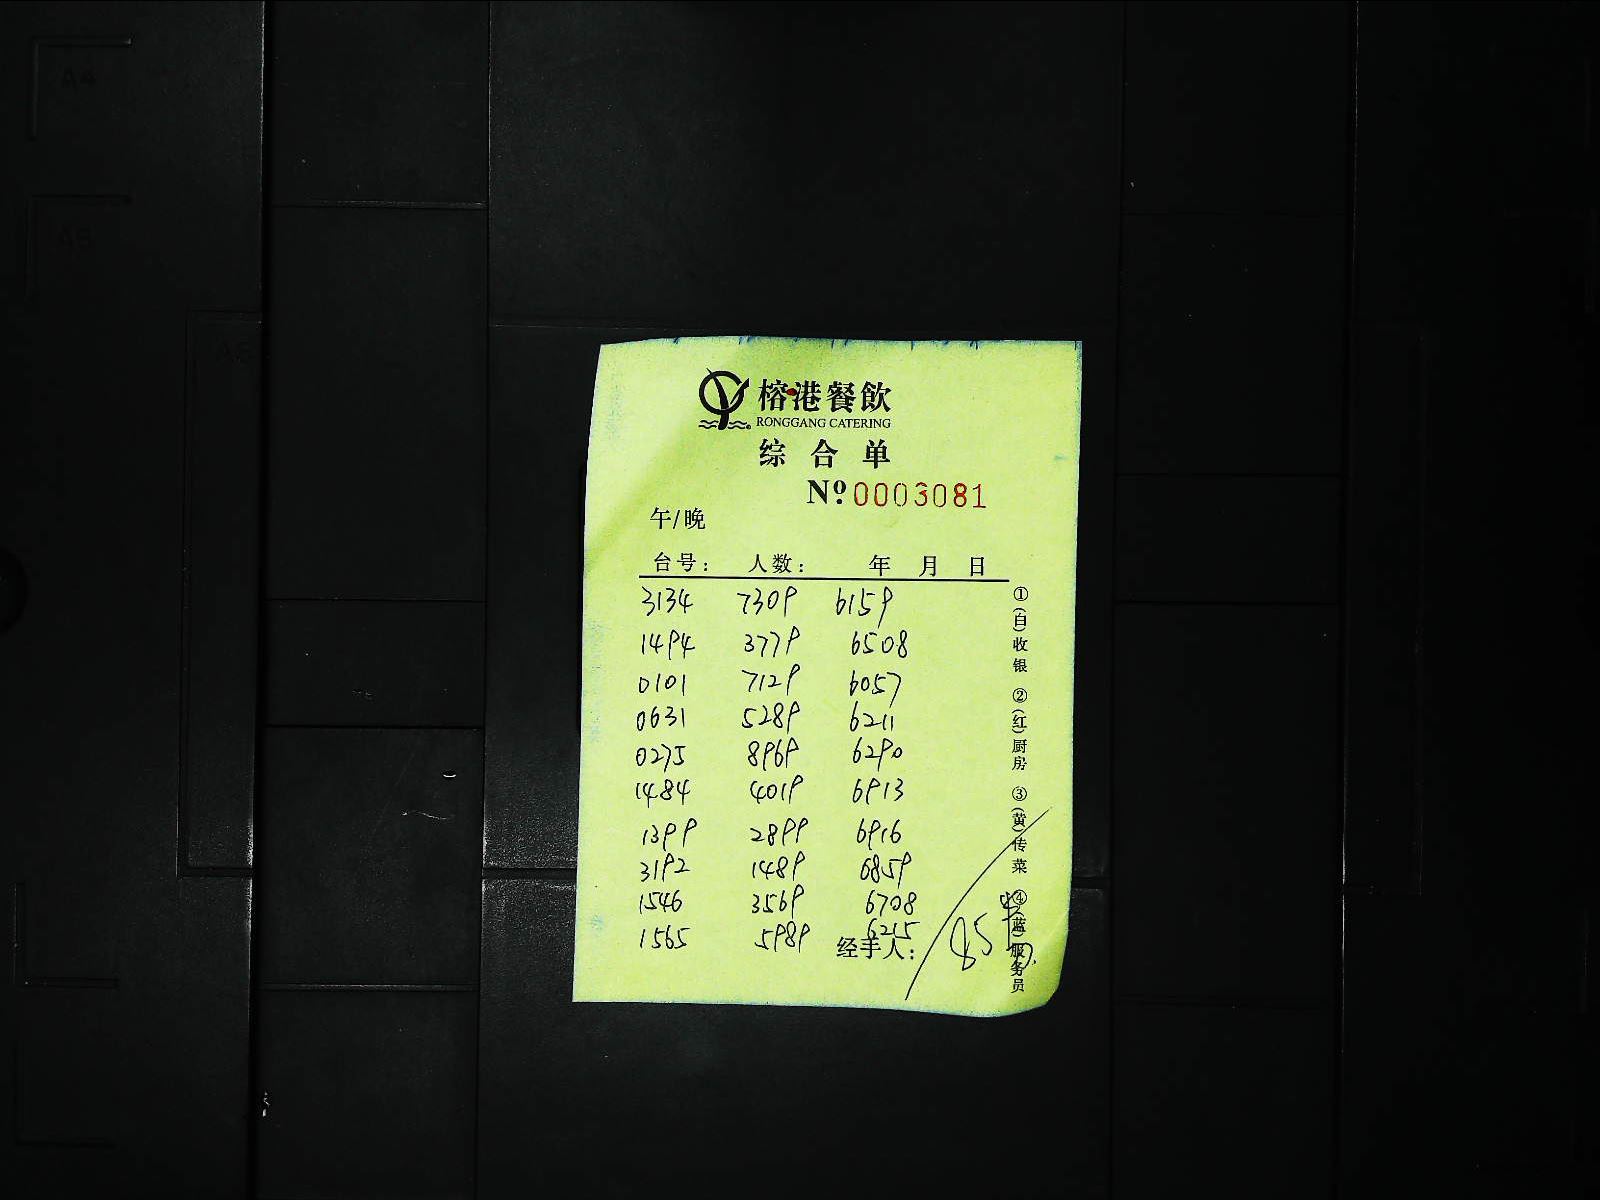 榕港餐飲
RONGGANG CATERING
综合单
Nº 0003081
午/晚
台号： 人数： 年 月 日
3134 7309 6159
1494 3779 6508
0101 7129 6057
0631 5289 6211
0275 8969 6290
1484 4019 6913
1399 2899 6916
3192 1489 6859
1546 3569 6708
1565 5989 6215
经手人：
85
①(白)收银 ②(红)厨房 ③(黄)传菜 ④(蓝)服务员